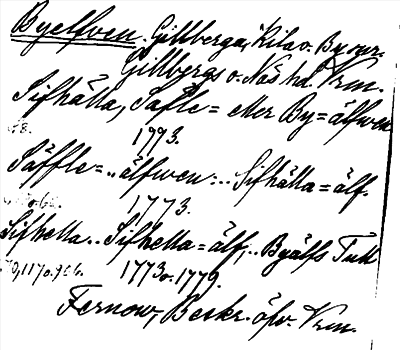 Byelfven. Gillberga, Kila o. By snr.
Gillbergs o. Näs hd. Vrm.
Sifhälla, Säfle= eller By=älfwen
1793.
Säffle=..älfwen... Sifhälla=älf.
1773.
Sifhella.. Sifhella=älf,.. Byälfs Tull
70,117 o. 966. 1773 o. 1779.
Fernow, Beskr. öfv. Vrm.